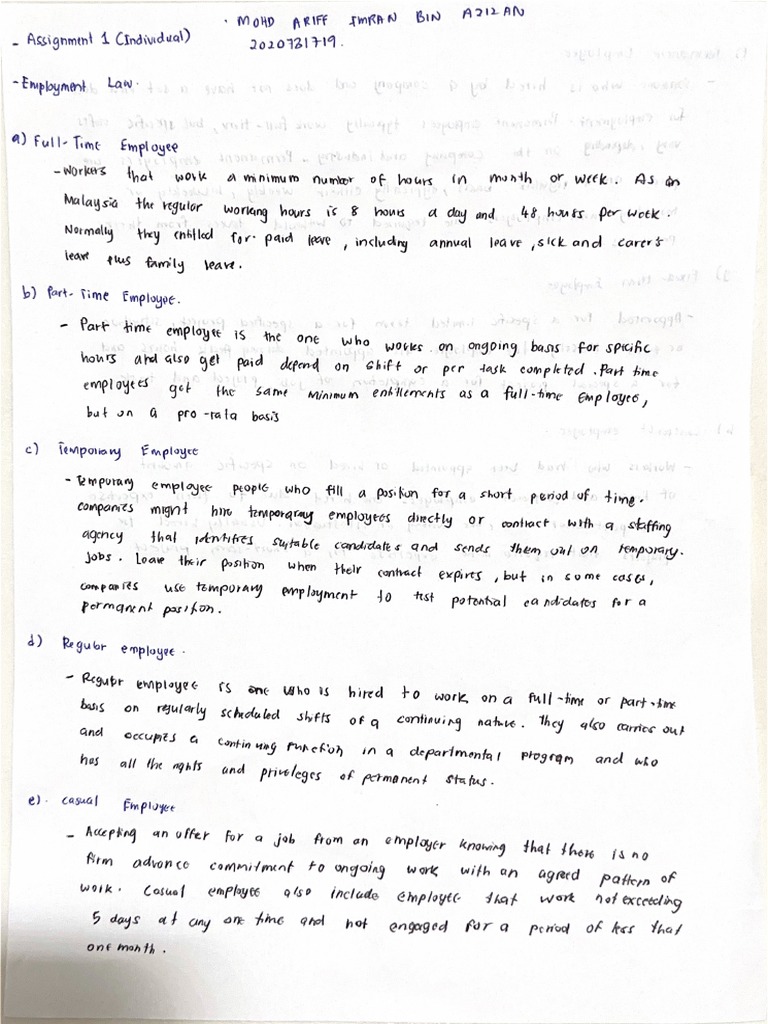 - Assignment 1 (Individual)
· MOHD ARIFF IMRAN BIN AZIZAN
2020731719.
- Employment Law.
a) Full-Time Employee
- Workers that work a minimum number of hours in month or week. As in
Malaysia the regular working hours is 8 hours a day and 48 hours per week.
Normally they entitled for paid leave, including annual leave, sick and carer's
leave plus family leave.
b) Part-Time Employee.
- Part time employee is the one who works on ongoing basis for specific
hours and also get paid depend on shift or per task completed. Part time
employees get the same minimum entitlements as a full-time employee,
but on a pro-rata basis
c) Temporary Employee
- Temporary employee people who fill a position for a short period of time.
companies might hire temporaray employees directly or contract with a staffing
agency that identifies suitable candidates and sends them out on temporary.
jobs. Leave their position when their contract expires, but in some cases,
companies use temporary employment to test potential candidates for a
permanent position.
d) Regular employee.
- Regular employee is one who is hired to work on a full-time or part-time
basis on regularly scheduled shifts of a continuing nature. They also carries out
and occupies a continuing function in a departmental program and who
has all the rights and privileges of permanent status.
e). Casual Employee
- Accepting an offer for a job from an employer knowing that there is no
firm advance commitment to ongoing work with an agreed pattern of
work. Casual employee also include employee that work not exceeding
5 days at any one time and not engaged for a period of less that
one month.